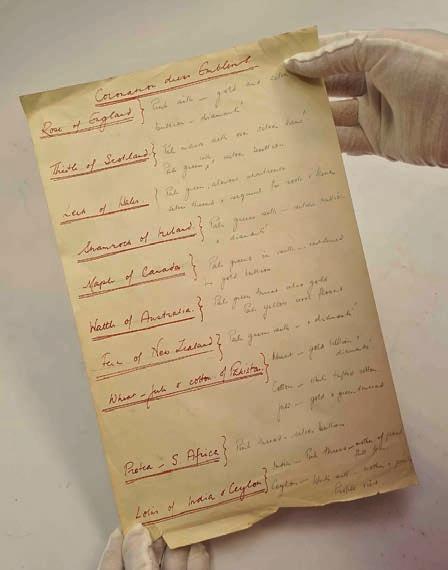 Coronation dress Emblems
Rose of England } Pink silk – gold and silver
bullion – diamanté
Thistle of Scotland } Pale mauve silk silver
Pale green silver bullion
Leek of Wales } Pale green,
silver thread &
Shamrock of Ireland } Pale green silk – silver bullion
& diamanté
Maple of Canada } Pale green silk –
gold bullion
Wattle of Australia } Pale green thread also gold
Pale yellow wool
Fern of New Zealand } Pale green silk & diamanté
Wheat – jute & cotton of Pakistan } Wheat – gold bullion &
diamanté
Cotton – tufted cotton
Jute – gold & green thread
Protea – S Africa } Pink thread – silver bullion
Lotus of India & Ceylon } India – Pink thread – mother of pearl
Ceylon – silk – mother of pearl